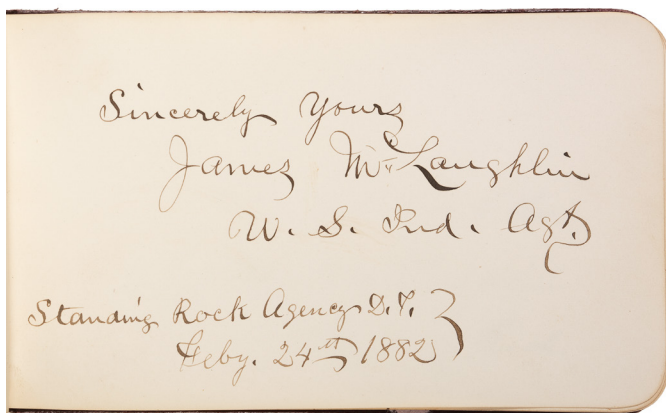 Sincerely Yours
James McLaughlin
U. S. Ind. Agt.
Standing Rock Agency D.T.
Feby. 24th 1882